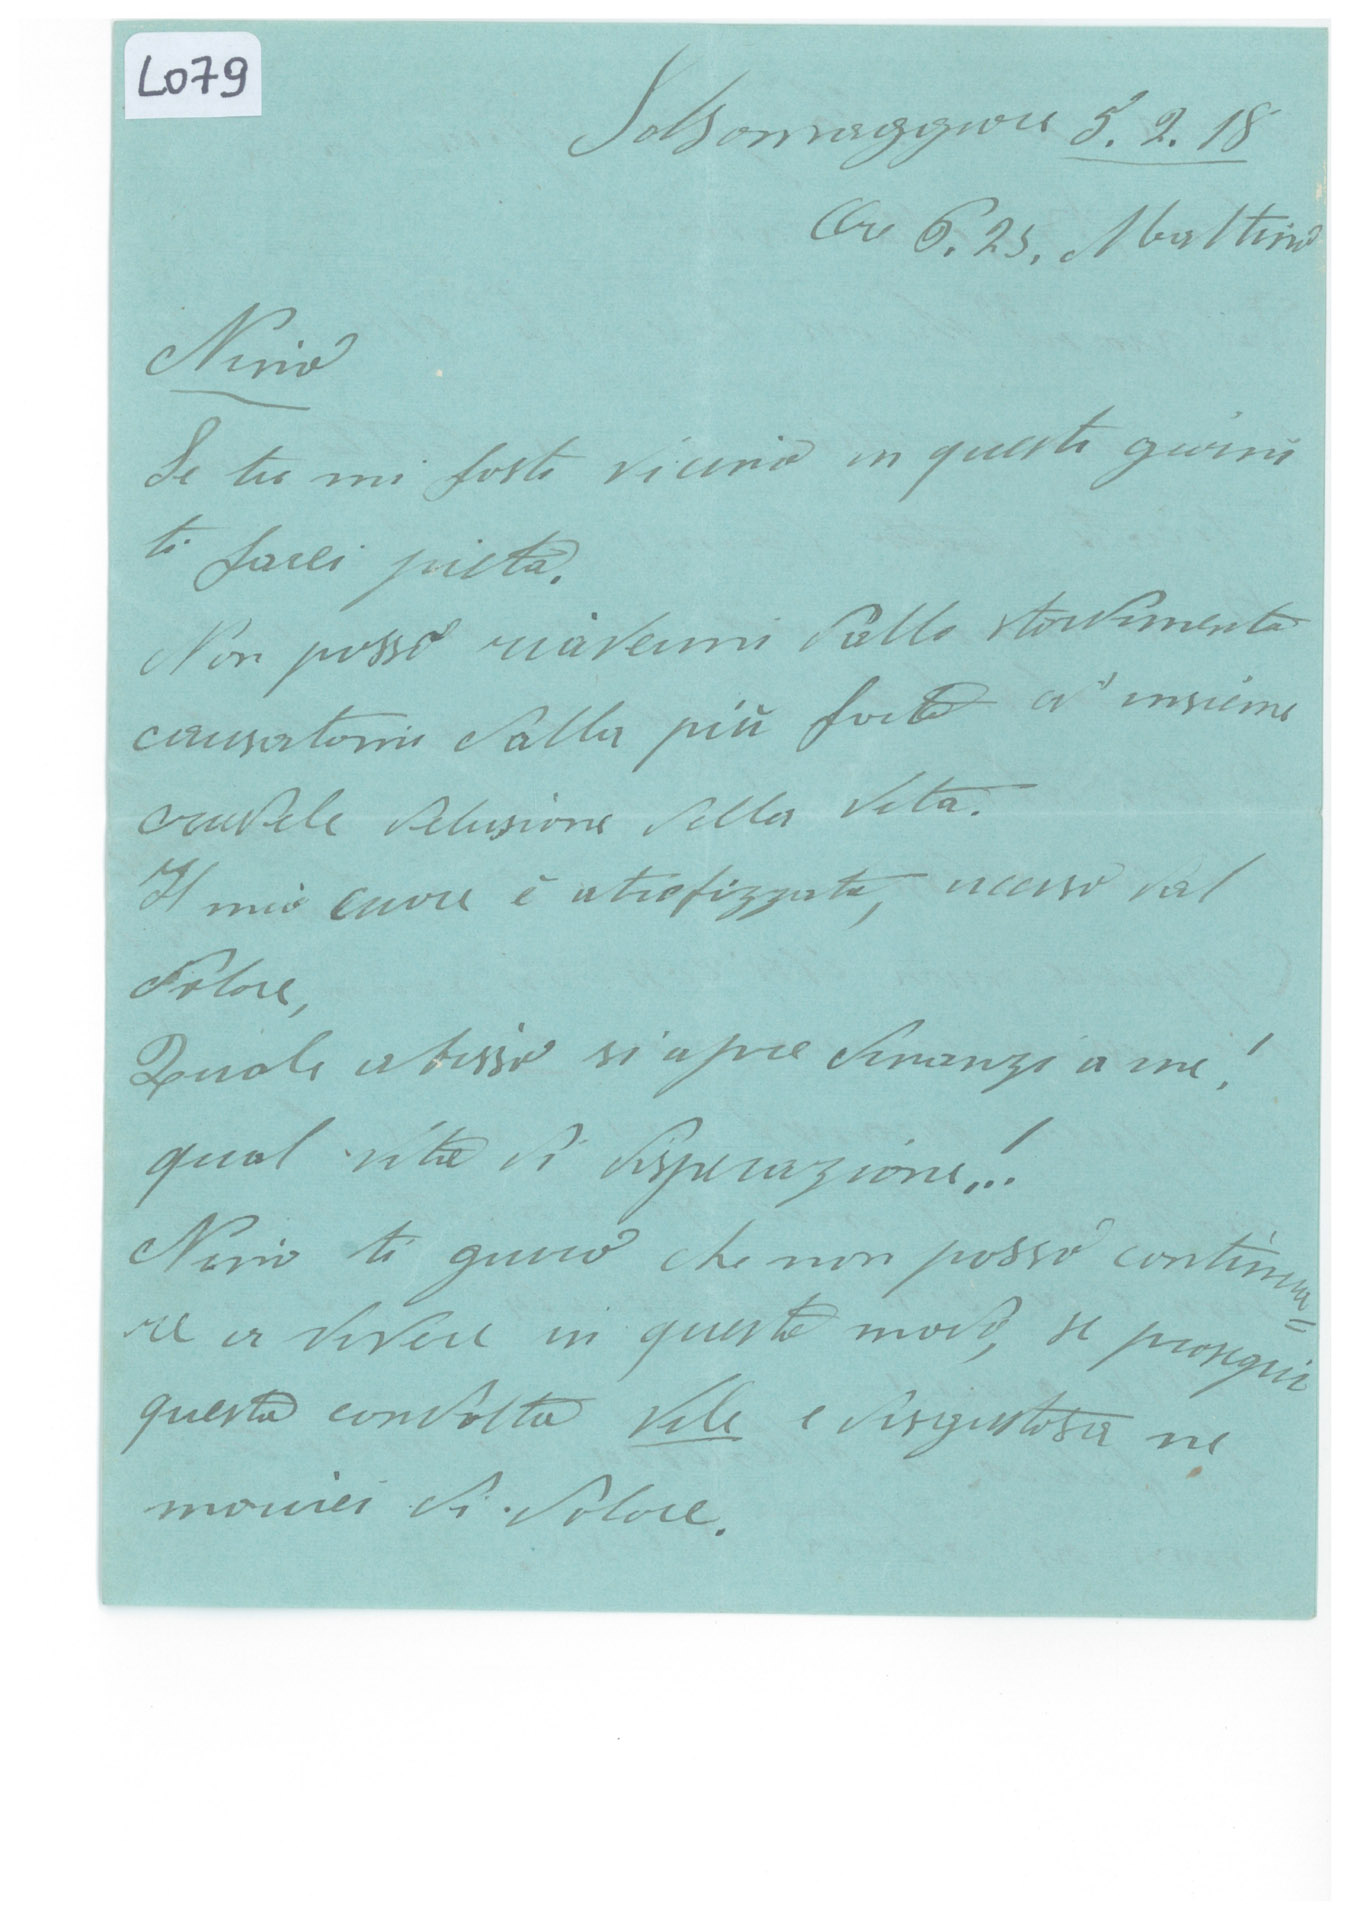 L079
Salsomaggiore 5.2.18
Ore 6.25. Mattino
Nino
Se tu mi fosti vicino in questi giorni
ti farei pietà.
Non posso riavermi dallo stordimento
causatomi dalla più forte ed insieme
crudele delusione della vita.
Il mio cuore è atrofizzato, ucciso dal
dolore,
Quale abisso si apre dinanzi a me!
qual vita di disperazione...!
Nino ti giuro che non posso continua=
re a vivere in questo modo, se prosegui
questa condotta vile e disgustosa ne
morirei di dolore.